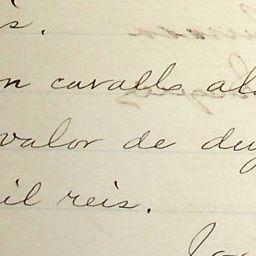 s.
m cavallo al
valor de duz
il reis.